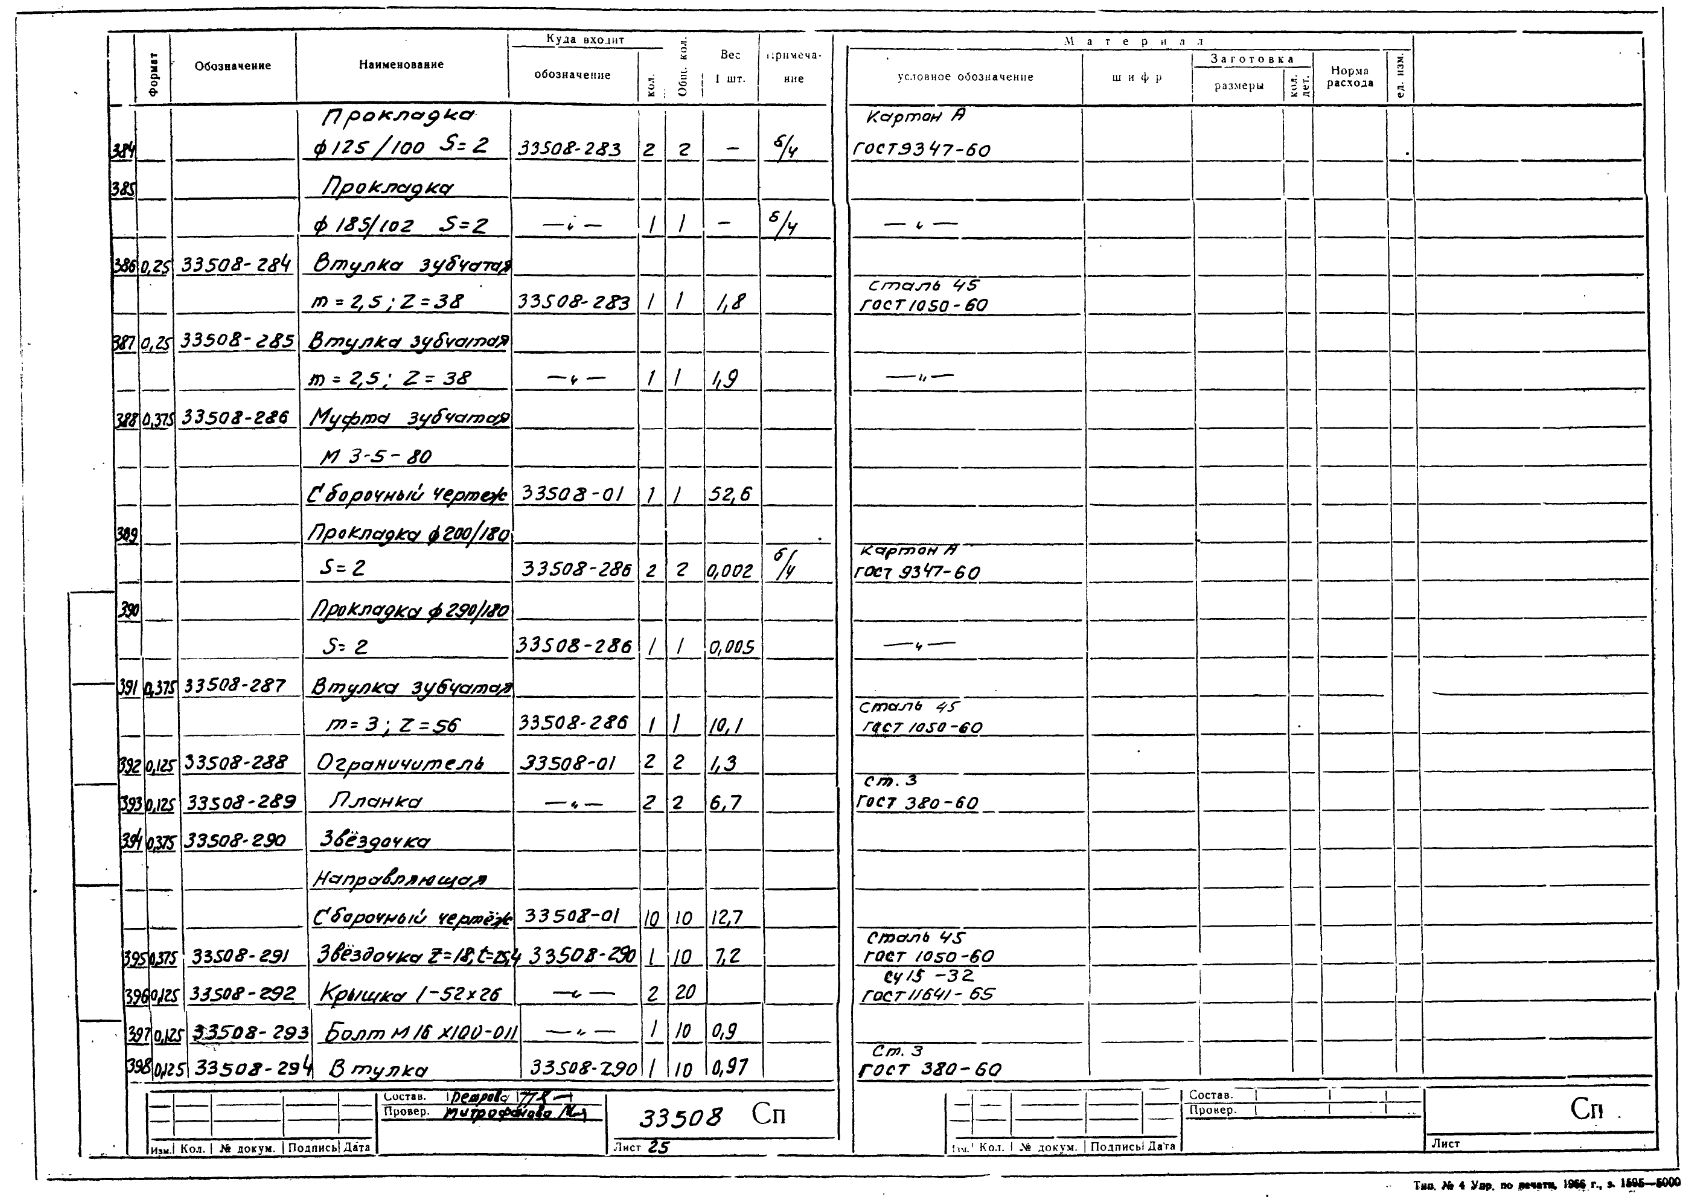 Формат Обозначение Наименование Куда входит обозначение кол. Общ. кол. Вес 1 шт. Примеча-ние Материал условное обозначение шифр Заготовка размеры кол. дет. Норма расхода ед. изм.
Прокладка Картон А
384 ф125/100 S=2 33508-283 2 2 – б/ч ГОСТ 9347-60
385 Прокладка
ф185/102 S=2 —"— 1 1 – б/ч —"—
386 0,25 33508-284 Втулка зубчатая
Сталь 45
m=2,5; Z=38 33508-283 1 1 1,8 ГОСТ 1050-60
387 0,25 33508-285 Втулка зубчатая
m=2,5; Z=38 —"— 1 1 1,9 —"—
388 0,375 33508-286 Муфта зубчатая
М 3-5-80
Сборочный чертеж 33508-01 1 1 52,6
389 Прокладка ф200/180
Картон А
S=2 33508-286 2 2 0,002 б/ч ГОСТ 9347-60
390 Прокладка ф290/180
S=2 33508-286 1 1 0,005 —"—
391 0,375 33508-287 Втулка зубчатая
Сталь 45
m=3; Z=56 33508-286 1 1 10,1 ГОСТ 1050-60
392 0,125 33508-288 Ограничитель 33508-01 2 2 1,3
Ст. 3
393 0,125 33508-289 Планка —"— 2 2 6,7 ГОСТ 380-60
394 0,375 33508-290 Звёздочка
Направляющая
Сборочный чертёж 33508-01 10 10 12,7
Сталь 45
395 0,375 33508-291 Звёздочка Z=18, t=25,4 33508-290 1 10 7,2 ГОСТ 1050-60
СЧ 15-32
396 0,125 33508-292 Крышка 1-52х26 —"— 2 20 ГОСТ 11641-65
397 0,125 33508-293 Болт М16х100-011 —"— 1 10 0,9
Ст. 3
398 0,125 33508-294 Втулка 33508-290 1 10 0,97 ГОСТ 380-60
Состав. Петрова
Провер. Митрофанова
33508 Сп
Изм. Кол. № докум. Подпись Дата
Лист 25
Состав.
Провер.
Сп
Изм. Кол. № докум. Подпись Дата
Лист
Тип. № 4 Упр. по печати, 1966 г., з. 1595—5000